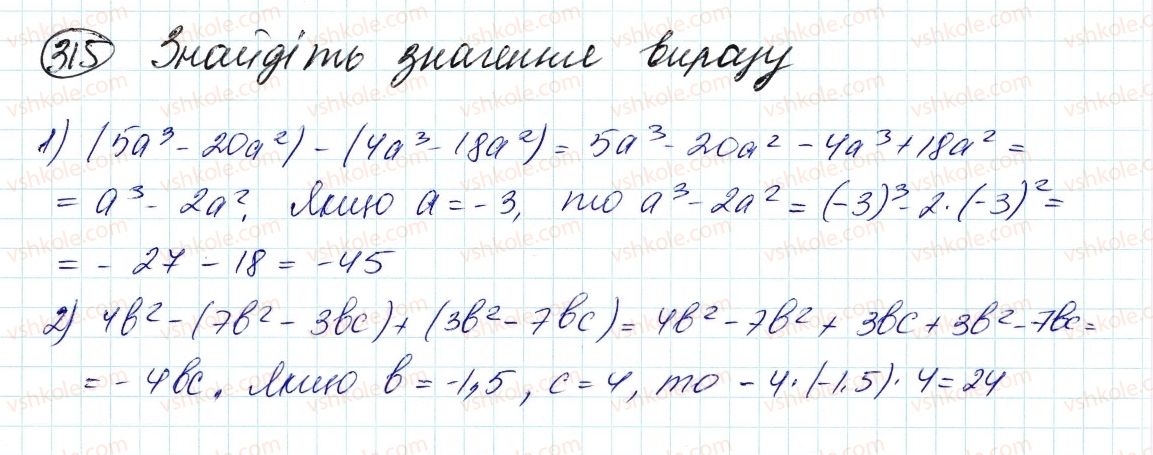 315 Знайдіть значення виразу
1) (5a³ - 20a²) - (4a³ - 18a²) = 5a³ - 20a² - 4a³ + 18a² =
= a³ - 2a². Якщо a = -3, то a³ - 2a² = (-3)³ - 2·(-3)² =
= - 27 - 18 = -45
2) 4b² - (7b² - 3bc) + (3b² - 7bc) = 4b² - 7b² + 3bc + 3b² - 7bc =
= - 4bc. Якщо b = -1,5, c = 4, то - 4·(-1,5)·4 = 24
vshkole.com